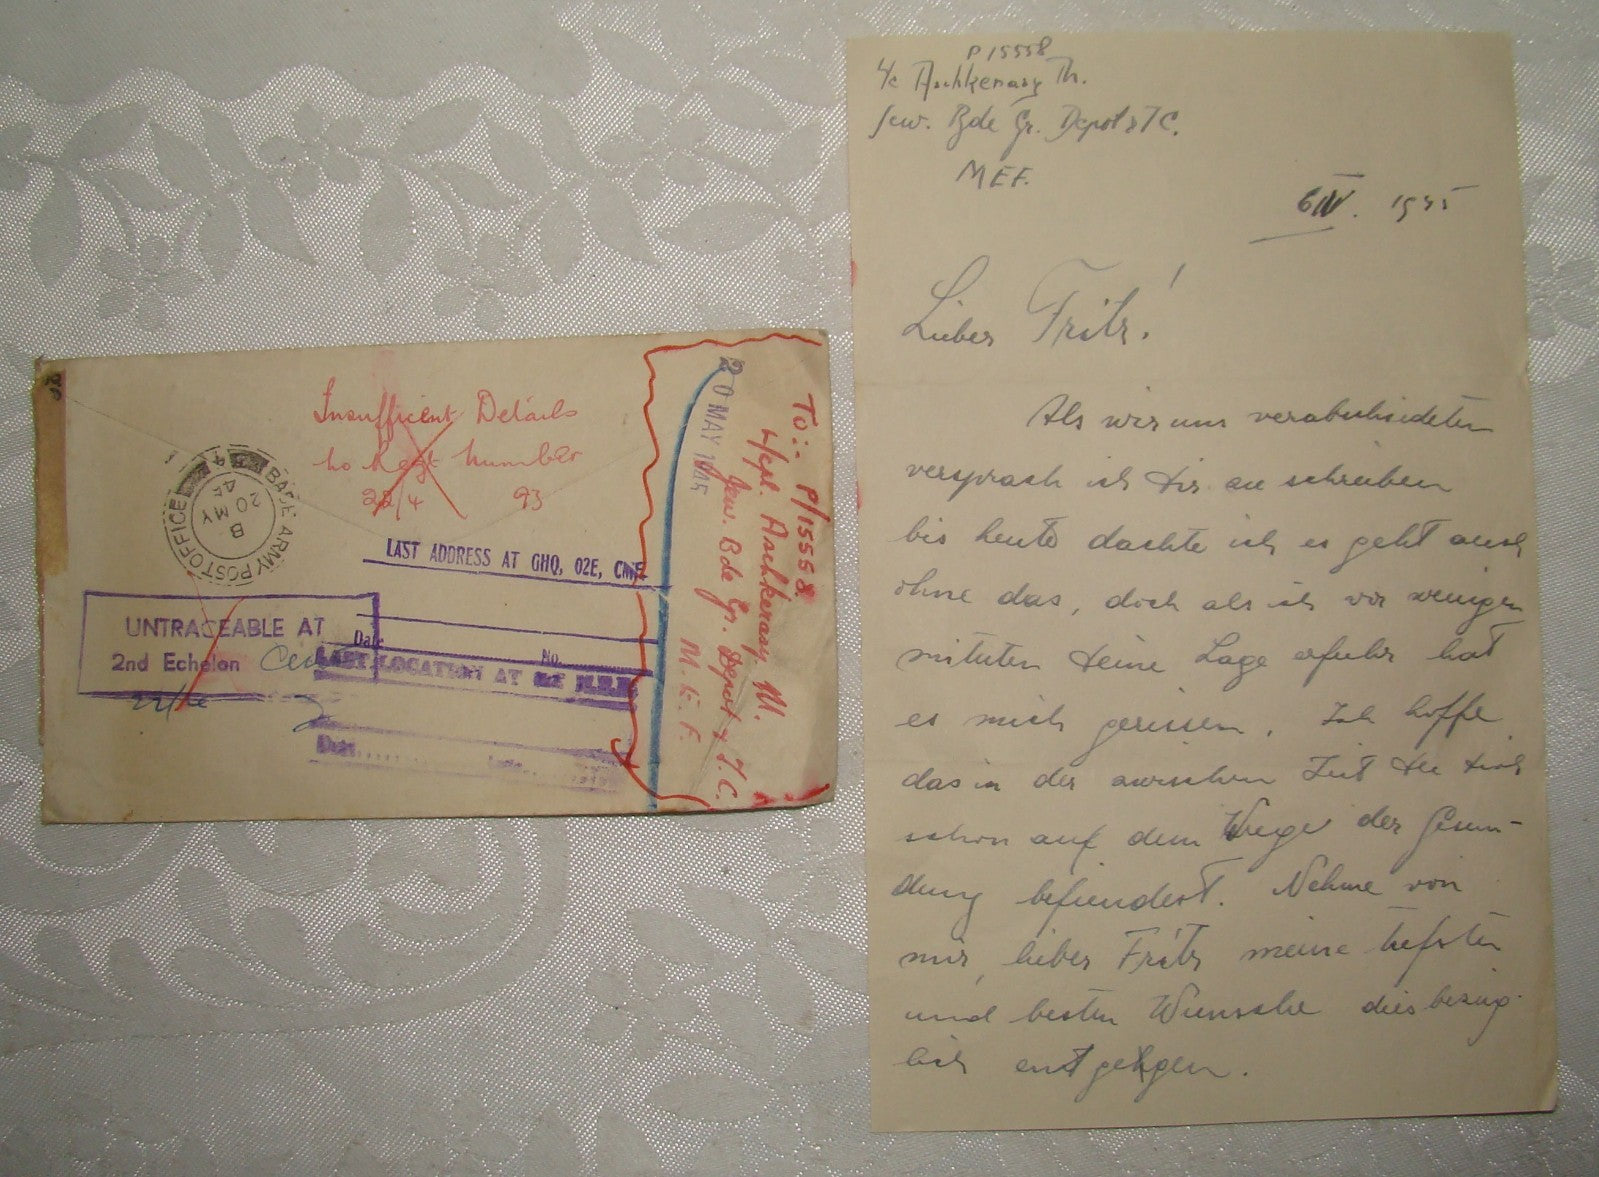 Insufficient Details
no Regt number
22/4 93
BASE ARMY POST OFFICE 4
B
20 MY
LAST ADDRESS AT GHQ, O2E, CMF
UNTRACEABLE AT
2nd Echelon
Date No.
LAST LOCATION AT
Date
20 MAY 1945
To:- P/15558
L/cpl. Aschkenasy M.
Jew. Bde Gr. Depot & T.C.
M.E.F.
P 15558
L/c Aschkenasy Th.
Jew. Bde Gr. Depot & TC.
MEF.
6 IV. 1945
Lieber Fritz!
Als wir uns verabschiedeten
versprach ich dir zu schreiben
bis heute dachte ich es geht auch
ohne das, doch als ich vor wenigen
minuten deine Lage erfuhr hat
es mich gerissen. Ich hoffe
das in der zwischen Zeit du dich
schon auf dem Wege der Gesun-
dung befindest. Nehme von
mir, lieber Fritz meine tiefsten
und besten Wunsche diesbezüg-
lich entgegen.